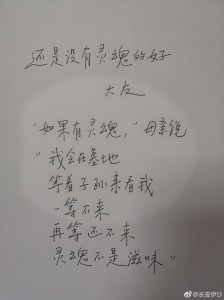 还是没有灵魂的好
大友
“如果有灵魂,”母亲说
“我会在墓地
等着子孙来看我
一等不来
再等还不来
灵魂不是滋味”
@长安伊沙